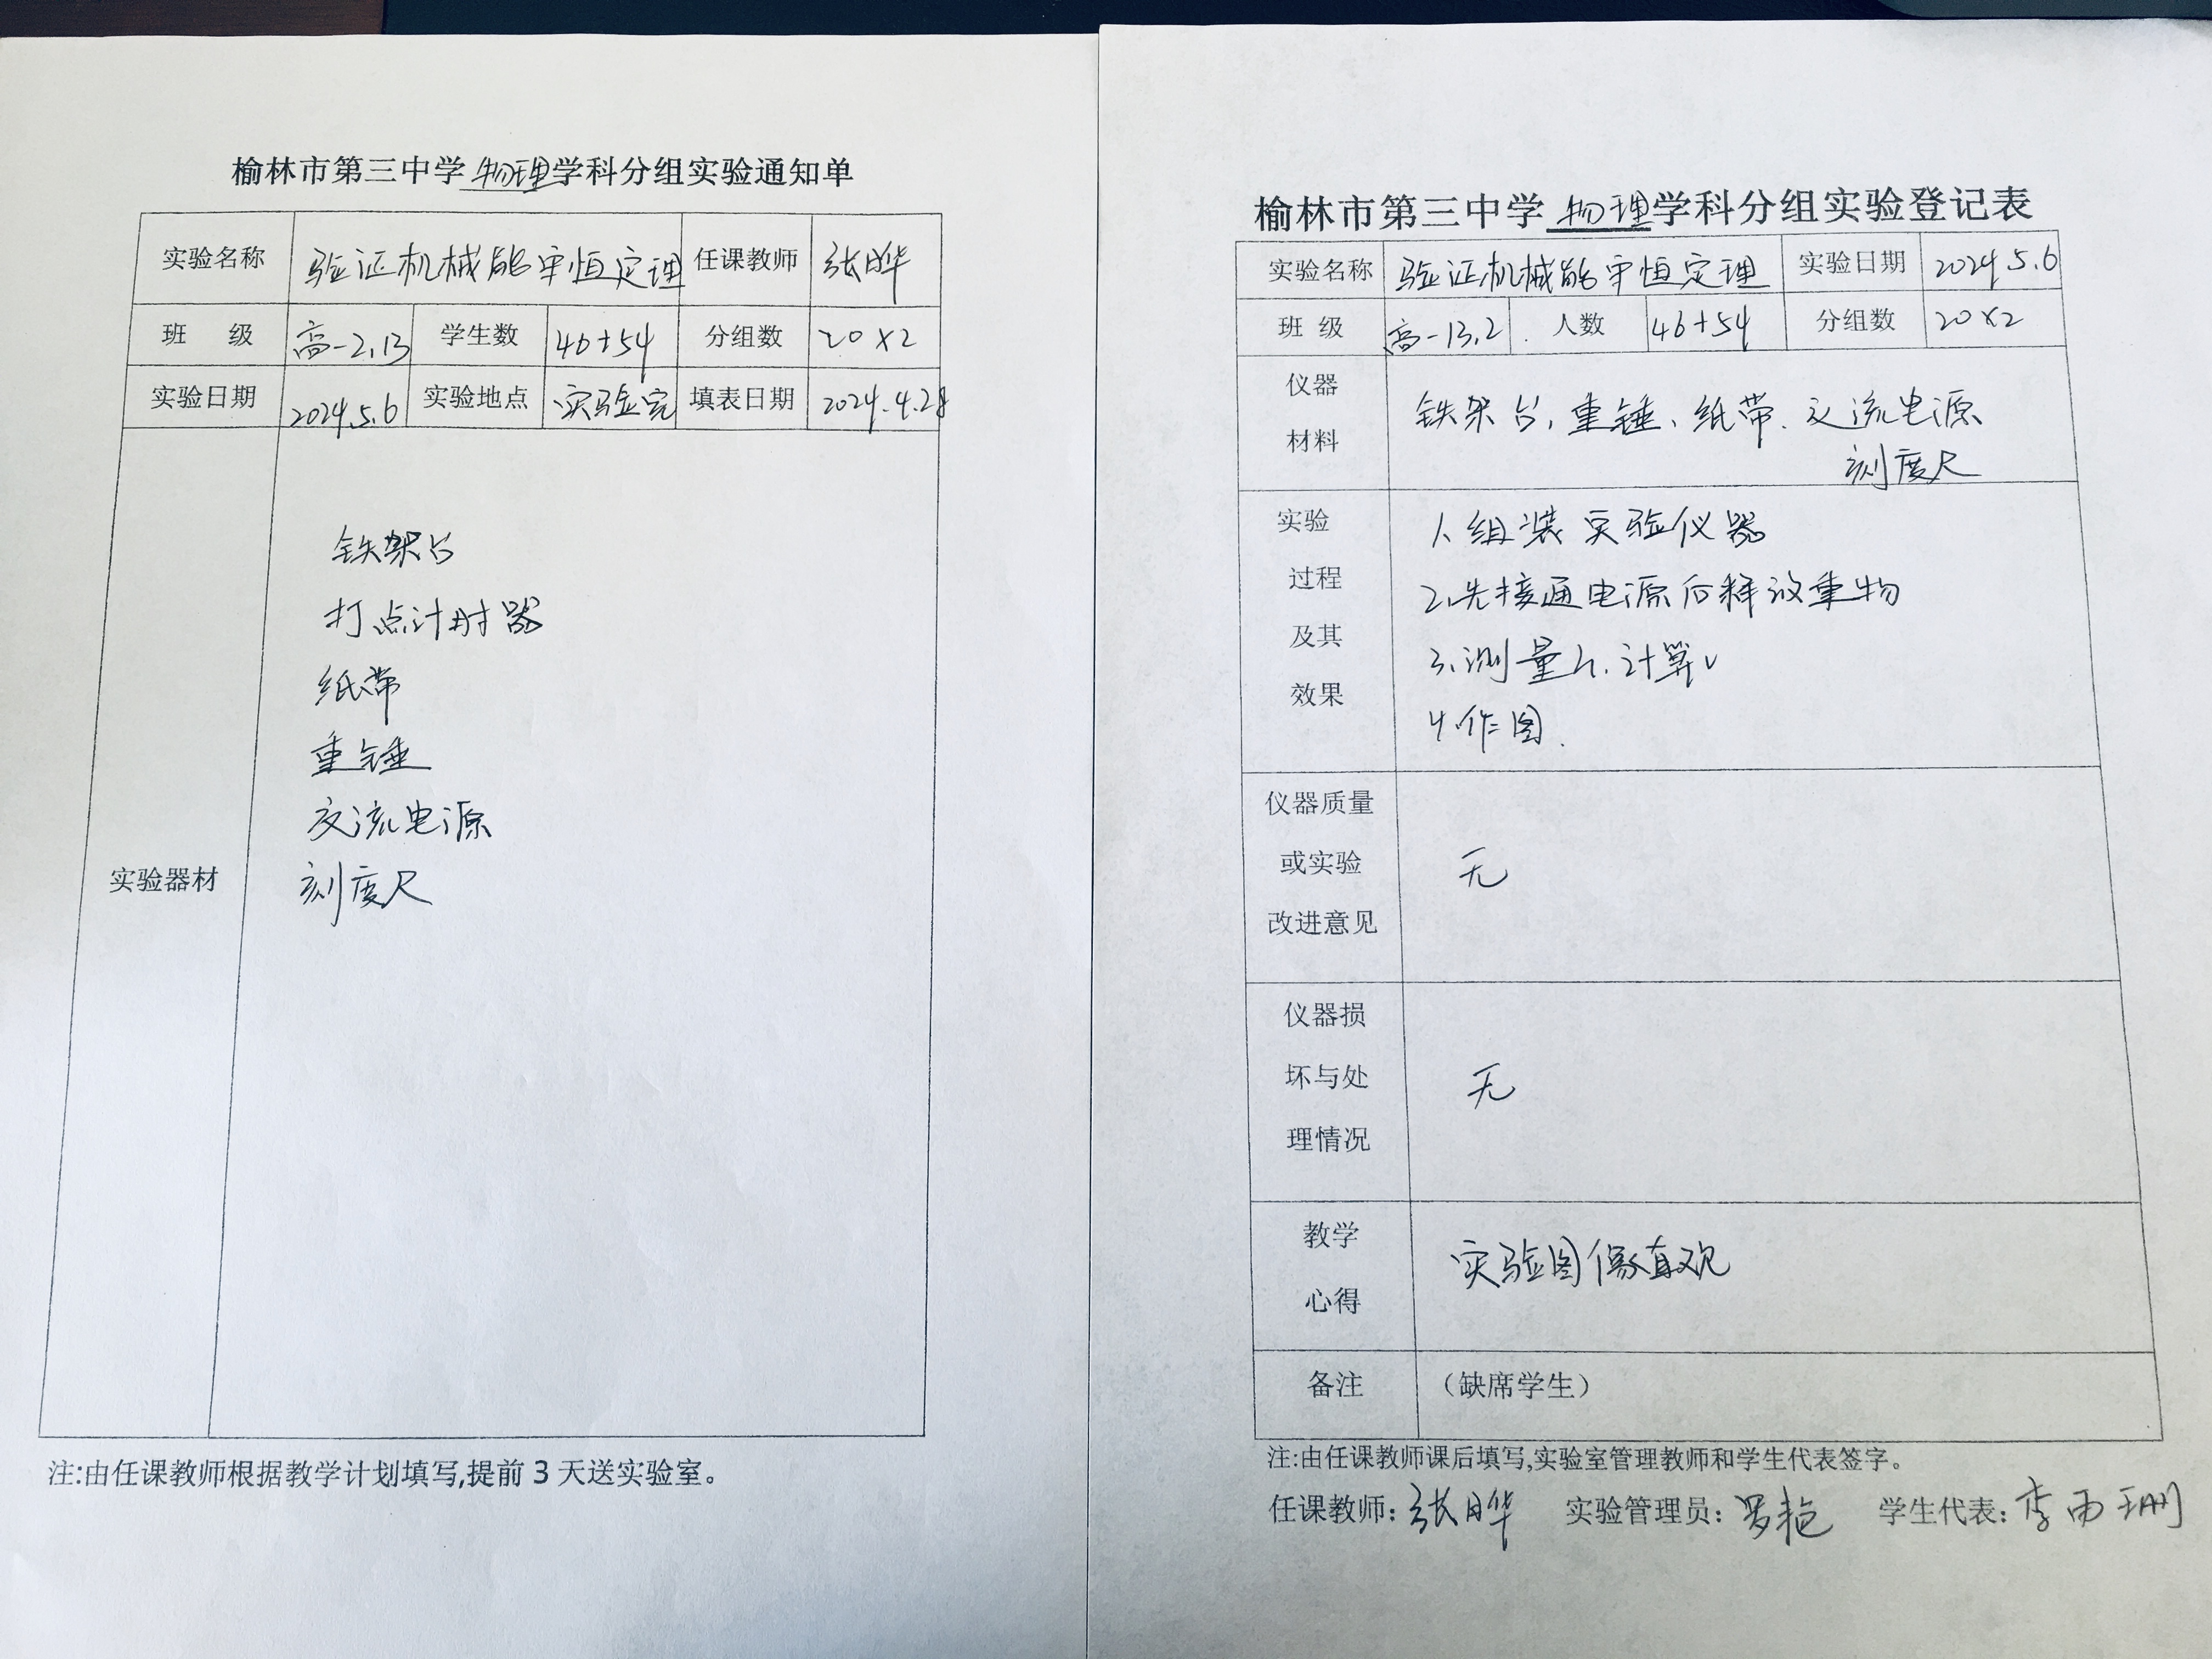 榆林市第三中学物理学科分组实验通知单
实验名称 验证机械能守恒定理 任课教师 张晔
班 级 高一2,13 学生数 46+54 分组数 20×2
实验日期 2024.5.6 实验地点 实验室 填表日期 2024.4.28
实验器材
铁架台
打点计时器
纸带
重锤
交流电源
刻度尺
注:由任课教师根据教学计划填写,提前3天送实验室。
榆林市第三中学物理学科分组实验登记表
实验名称 验证机械能守恒定理 实验日期 2024.5.6
班 级 高一13,2 人数 46+54 分组数 20×2
仪器
材料
铁架台、重锤、纸带、交流电源
刻度尺
实验
过程
及其
效果
1、组装实验仪器
2、先接通电源后释放重物
3、测量h、计算v
4、作图.
仪器质量
或实验
改进意见
无
仪器损
坏与处
理情况
无
教学
心得
实验图像直观
备注 （缺席学生）
注:由任课教师课后填写,实验室管理教师和学生代表签字。
任课教师: 张晔 实验管理员: 罗艳 学生代表: 李雨珊